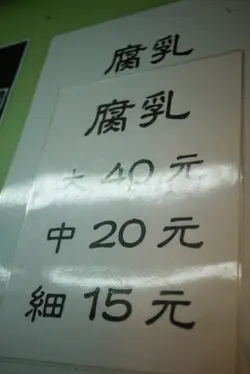 腐乳
腐乳
大 40 元
中 20 元
細 15 元